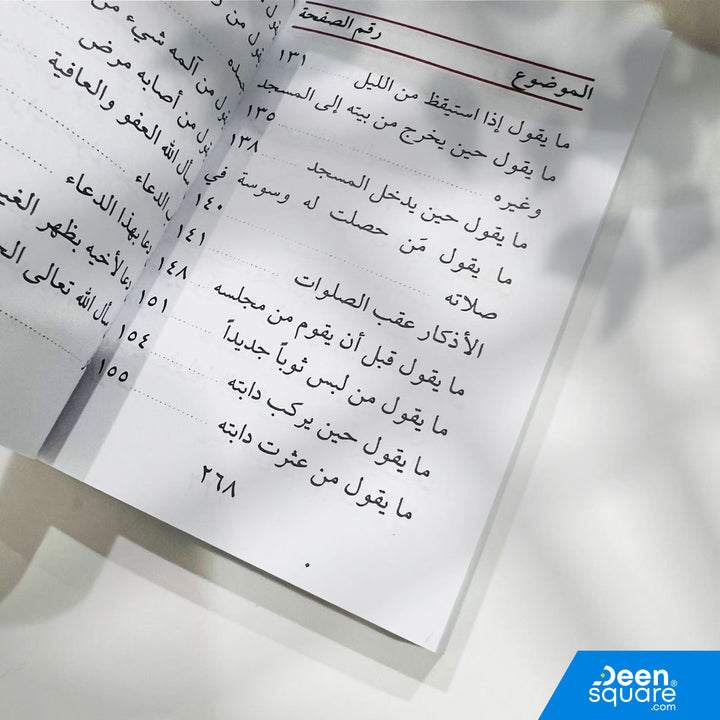 الموضوع رقم الصفحة
ما يقول إذا استيقظ من الليل ١٣١
ما يقول حين يخرج من بيته إلى المسجد
وغيره ١٣٥
ما يقول حين يدخل المسجد ١٣٨
ما يقول مَن حصلت له وسوسة في
صلاته ١٤٠
الأذكار عقب الصلوات ١٤١
ما يقول قبل أن يقوم من مجلسه ١٤٨
ما يقول من لبس ثوباً جديداً ١٥١
ما يقول حين يركب دابته ١٥٤
ما يقول من عثرت دابته ١٥٥
٢٦٨
من آلمه شيء من
من أصابه مرض
الله العفو والعافية
الدعاء
بهذا الدعاء
لأخيه بظهر
الله تعالى
Deen®
square
.com